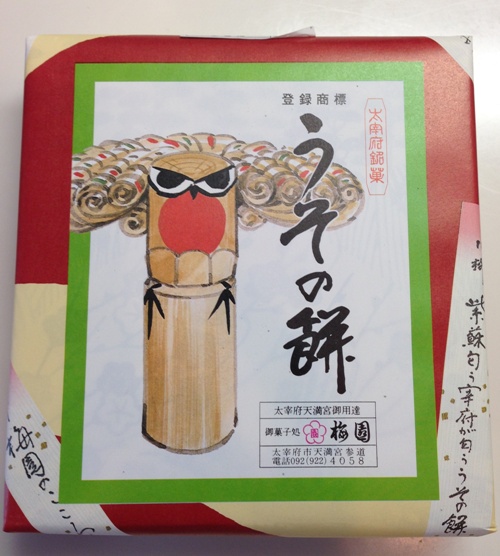 登録商標
太宰府銘菓
うその餅
太宰府天満宮御用達
御菓子処 園 梅園
太宰府市天満宮参道
電話092(922)4058
紫蘇匂う宰府が匂ううその餅
梅園